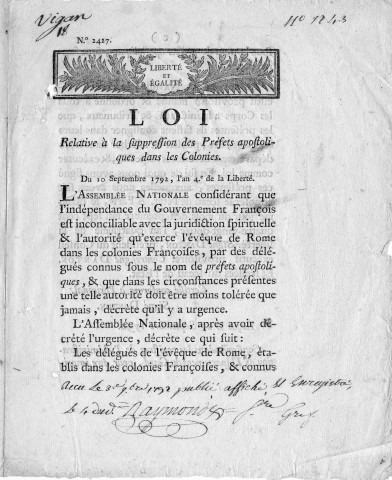 Vigan
N.º 2427.
LIBERTÉ
ET
ÉGALITÉ
LOI
Relative à la suppression des Préfets apostoli-
ques dans les Colonies.
Du 10 Septembre 1792, l'an 4.e de la Liberté.
L'ASSEMBLÉE NATIONALE considérant que
l'indépendance du Gouvernement François
est inconciliable avec la juridiction spirituelle
& l'autorité qu'exerce l'évêque de Rome
dans les colonies Françoises, par des délé-
gués connus sous le nom de préfets apostoli-
ques, & que dans les circonstances présentes
une telle autorité doit être moins tolérée que
jamais, décrète qu'il y a urgence.
L'Assemblée Nationale, après avoir dé-
crété l'urgence, décrète ce qui suit :
Les délégués de l'évêque de Rome, éta-
blis dans les colonies Françoises, & connus
publié affiché et Enregistré
Raymond